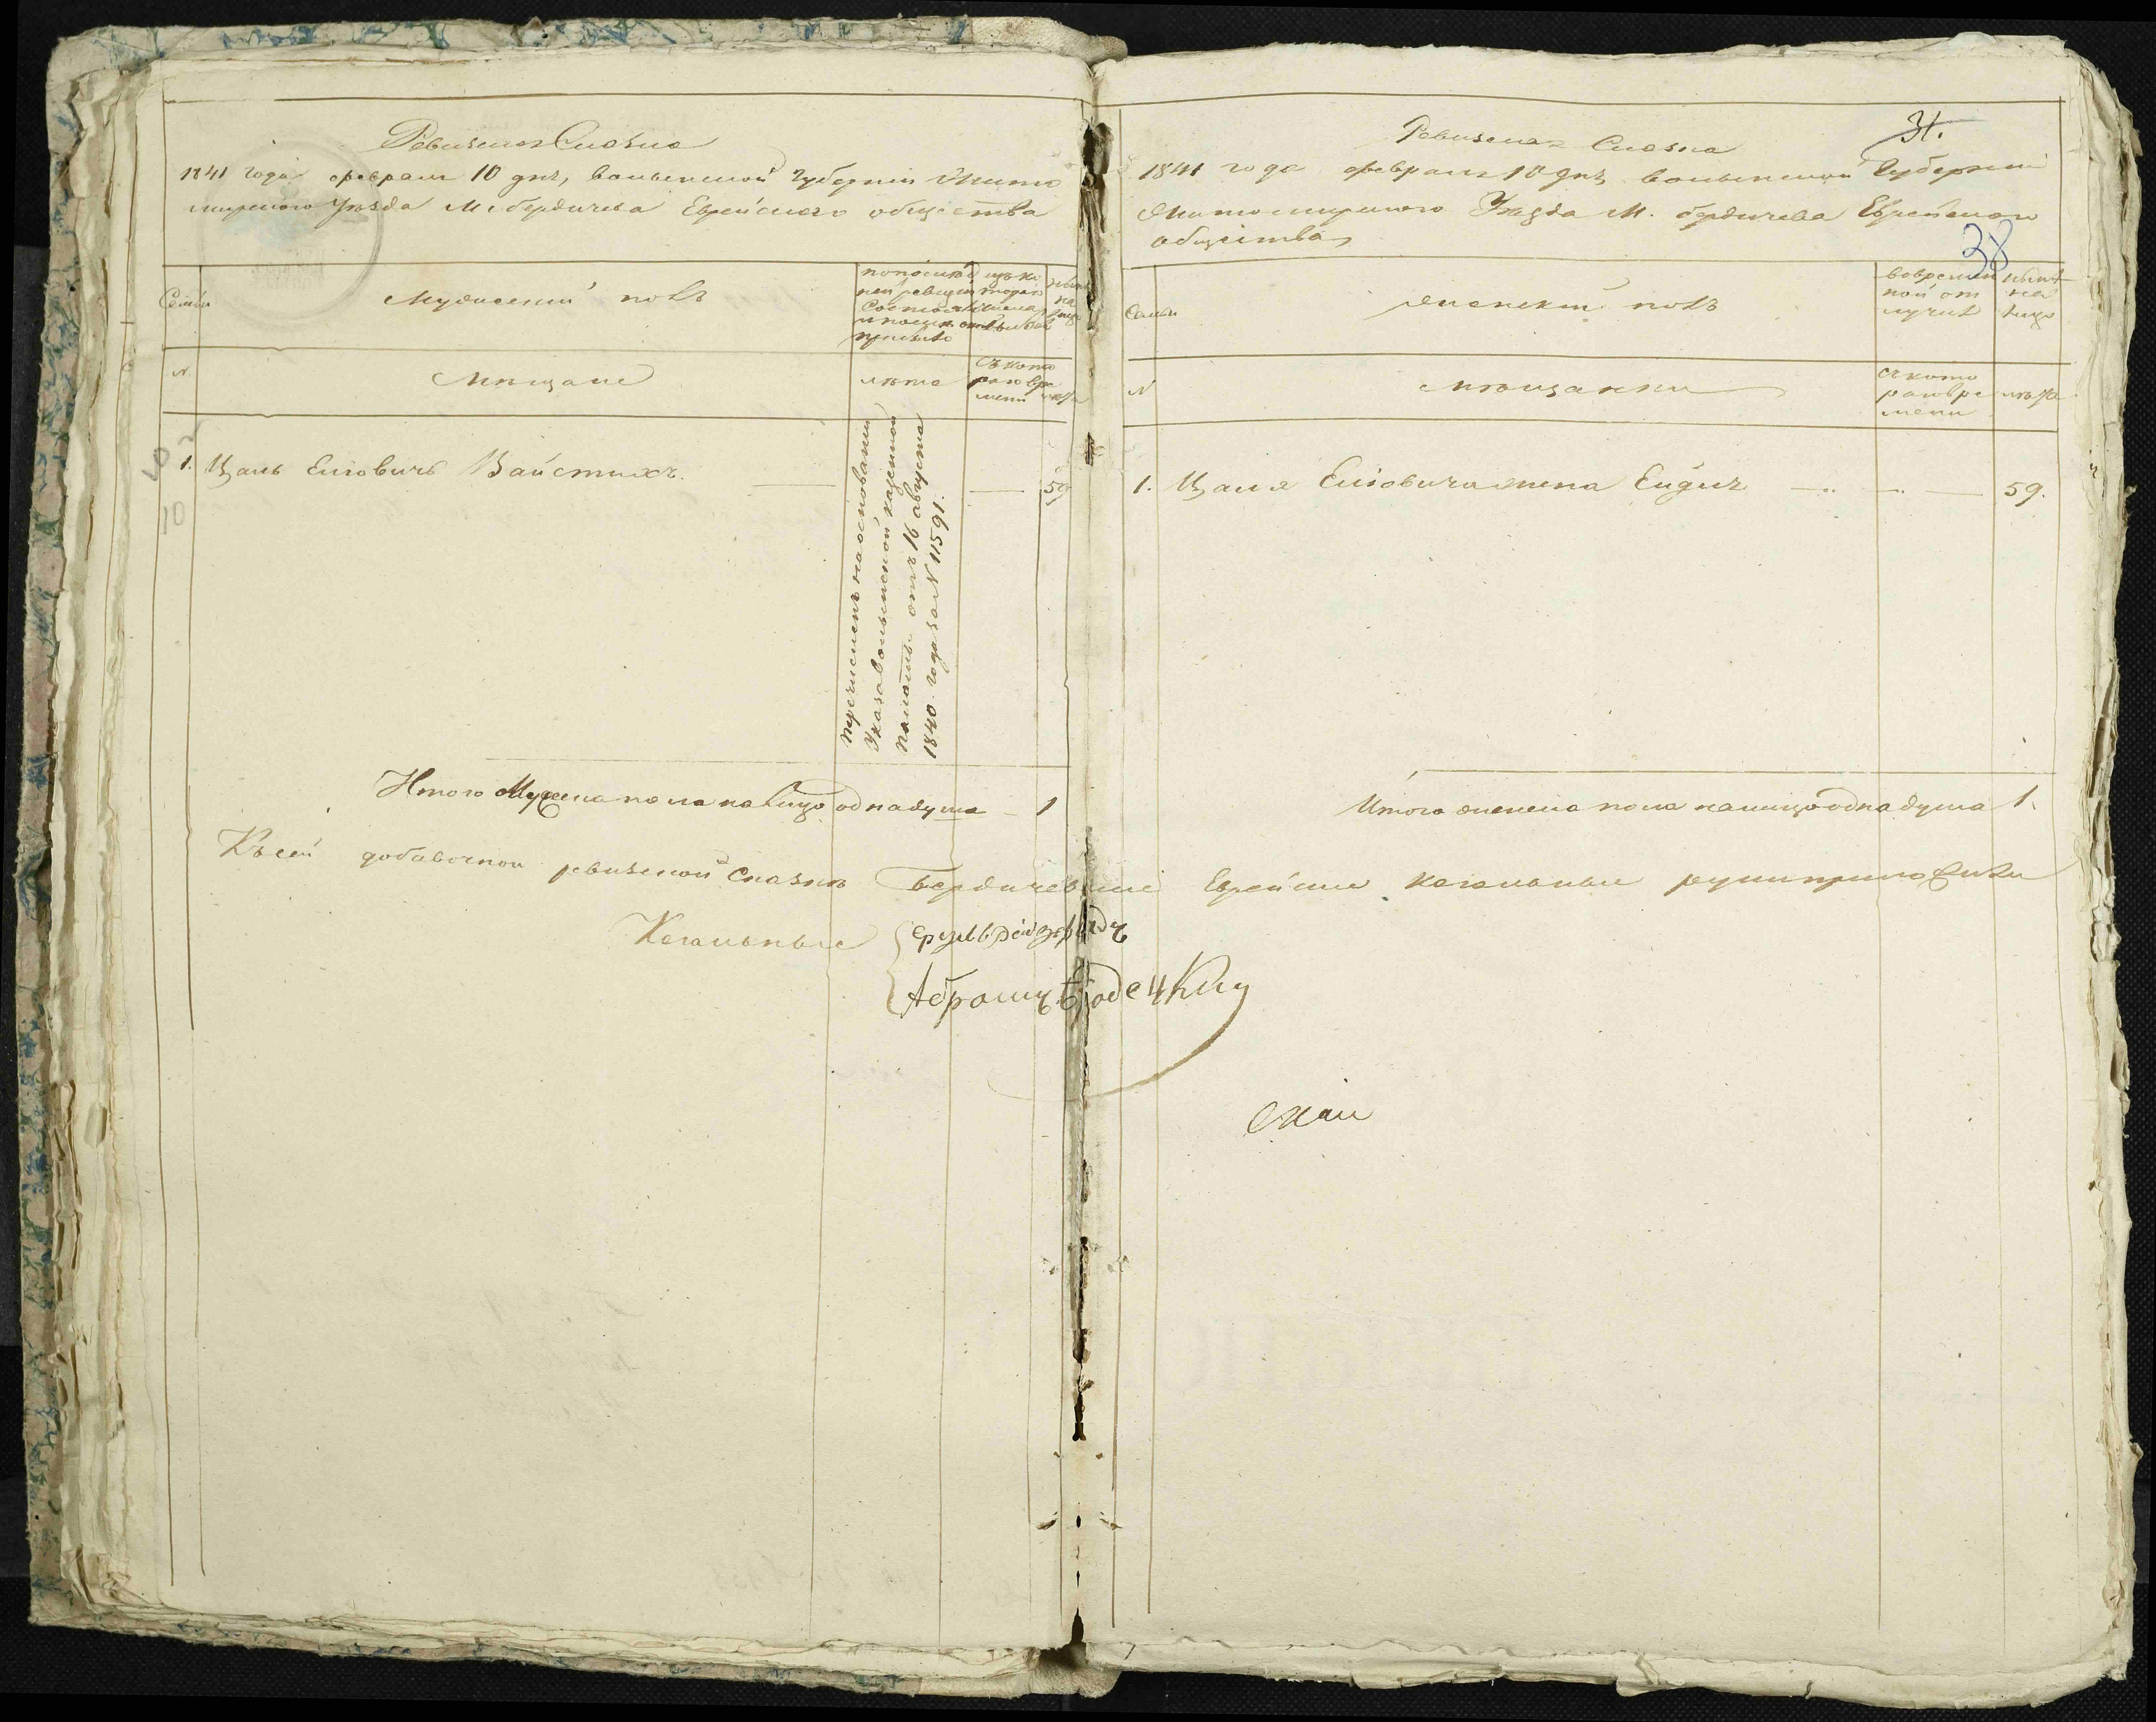 Ревизская Сказка
1841 года февраля 10 дня, волынской Губернии Жито
мирского Уезда М. бердичева Еврейского общества
Семьи
Мужеский полъ
по последней ревизии состояло и после прибыло
изъ того числа выбыло
ныне на лицо
N
Мещане
лета
съ кото
раго вре
мени
лета
1. Цаль Елiовичъ Вайстихъ. 59
перечисленъ на основании
Указа волынской казенной
палаты отъ 16 августа
1840 года за N 11591.
Итого Мужеска пола на лицо одна душа 1
31.
Ревизская Сказка
1841 года февраля 10 дня, волынской Губернии
Житомирского Уезда М. бердичева Еврейского
общества
38
Семьи
женский полъ
во времен
ной от
лучке
ныне
на
лицо
N
мещанки
съ кото
раго вре
мени
лета
1. Цаля Елiовича жена Ейдля 59.
Итого женска пола на лицо одна душа 1.
Къ сей добавочной ревизской Сказке бердичевские Еврейские кагальные руки приложили
Кагальные
Абрамъ Бродецкий